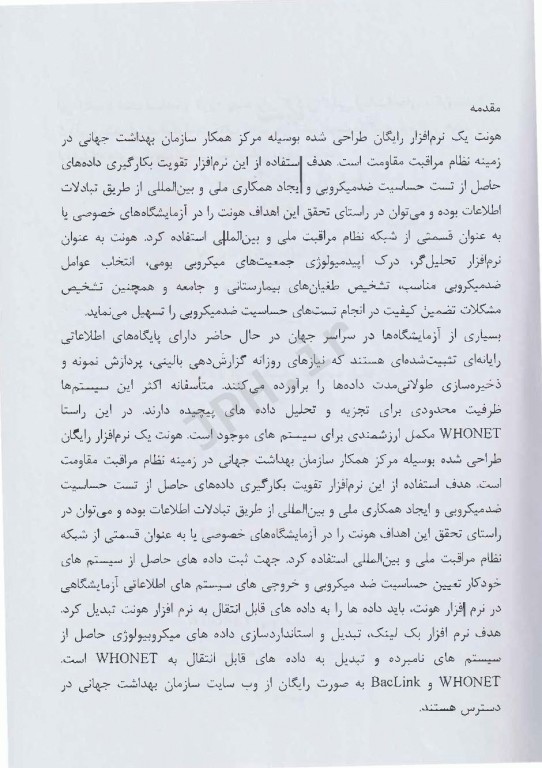 مقدمه
هونت یک نرم‌افزار رایگان طراحی شده بوسیله مرکز همکار سازمان بهداشت جهانی در
زمینه نظام مراقبت مقاومت است. هدف استفاده از این نرم‌افزار تقویت بکارگیری داده‌های
حاصل از تست حساسیت ضدمیکروبی و ایجاد همکاری ملی و بین‌المللی از طریق تبادلات
اطلاعات بوده و می‌توان در راستای تحقق این اهداف هونت را در آزمایشگاه‌های خصوصی یا
به عنوان قسمتی از شبکه نظام مراقبت ملی و بین‌المللی استفاده کرد. هونت به عنوان
نرم‌افزار تحلیل‌گر، درک اپیدمیولوژی جمعیت‌های میکروبی بومی، انتخاب عوامل
ضدمیکروبی مناسب، تشخیص طغیان‌های بیمارستانی و جامعه و همچنین تشخیص
مشکلات تضمین کیفیت در انجام تست‌های حساسیت ضدمیکروبی را تسهیل می‌نماید.
بسیاری از آزمایشگاه‌ها در سراسر جهان در حال حاضر دارای پایگاه‌های اطلاعاتی
رایانه‌ای تثبیت‌شده‌ای هستند که نیازهای روزانه گزارش‌دهی بالینی، پردازش نمونه و
ذخیره‌سازی طولانی‌مدت داده‌ها را برآورده می‌کنند. متأسفانه اکثر این سیستم‌ها
ظرفیت محدودی برای تجزیه و تحلیل داده های پیچیده دارند. در این راستا
WHONET مکمل ارزشمندی برای سیستم های موجود است. هونت یک نرم‌افزار رایگان
طراحی شده بوسیله مرکز همکار سازمان بهداشت جهانی در زمینه نظام مراقبت مقاومت
است. هدف استفاده از این نرم‌افزار تقویت بکارگیری داده‌های حاصل از تست حساسیت
ضدمیکروبی و ایجاد همکاری ملی و بین‌المللی از طریق تبادلات اطلاعات بوده و می‌توان در
راستای تحقق این اهداف هونت را در آزمایشگاه‌های خصوصی یا به عنوان قسمتی از شبکه
نظام مراقبت ملی و بین‌المللی استفاده کرد. جهت ثبت داده های حاصل از سیستم های
خودکار تعیین حساسیت ضد میکروبی و خروجی های سیستم های اطلاعاتی آزمایشگاهی
در نرم افزار هونت، باید داده ها را به داده های قابل انتقال به نرم افزار هونت تبدیل کرد.
هدف نرم افزار بک لینک، تبدیل و استانداردسازی داده های میکروبیولوژی حاصل از
سیستم های نامبرده و تبدیل به داده های قابل انتقال به WHONET است.
WHONET و BacLink به صورت رایگان از وب سایت سازمان بهداشت جهانی در
دسترس هستند.
JPH.ir